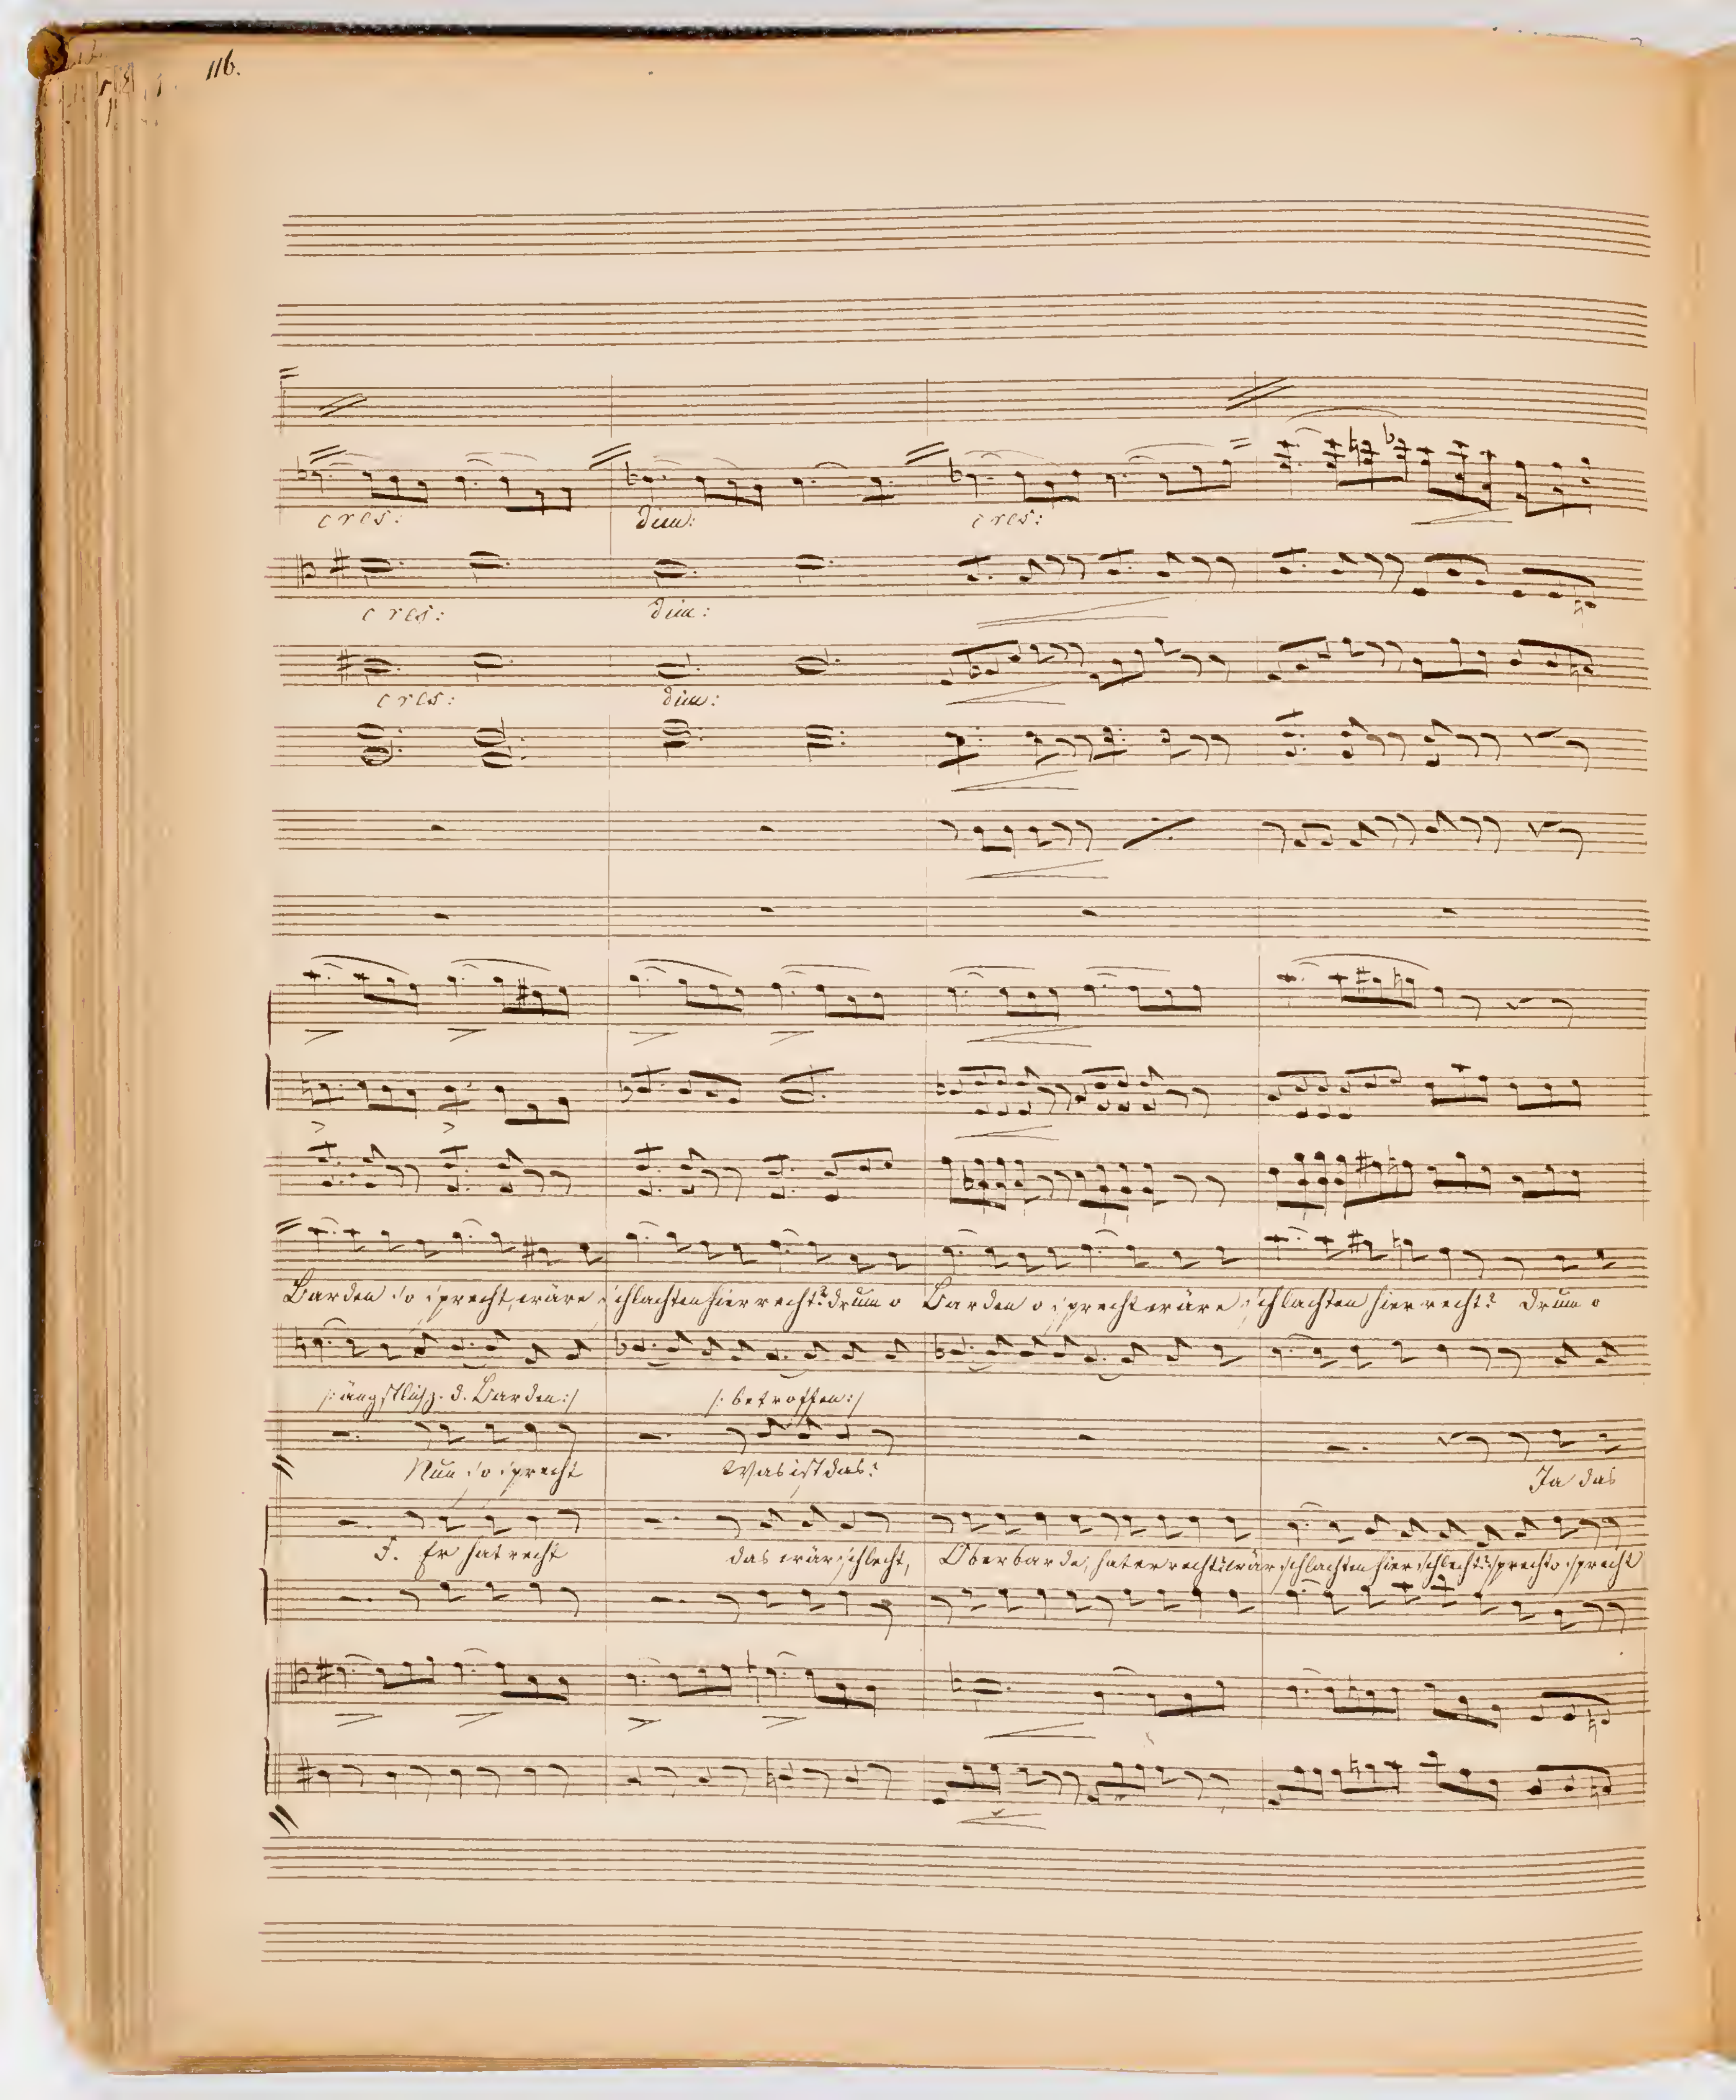 116.
cres: dim: cres:
cres: dim:
cres: dim:
Barden so sprecht, wäre schlachten hier recht? drum o Barden o sprecht wäre schlachten hier recht? Drum o
/: ängstlich z. d. Barden :/ /: betroffen :/
Nun so sprecht Was ist das? Ja das
F. Er hat recht das wär schlecht, Oberbarde, hat er recht? wär schlachten hier schlecht? sprecht o sprecht